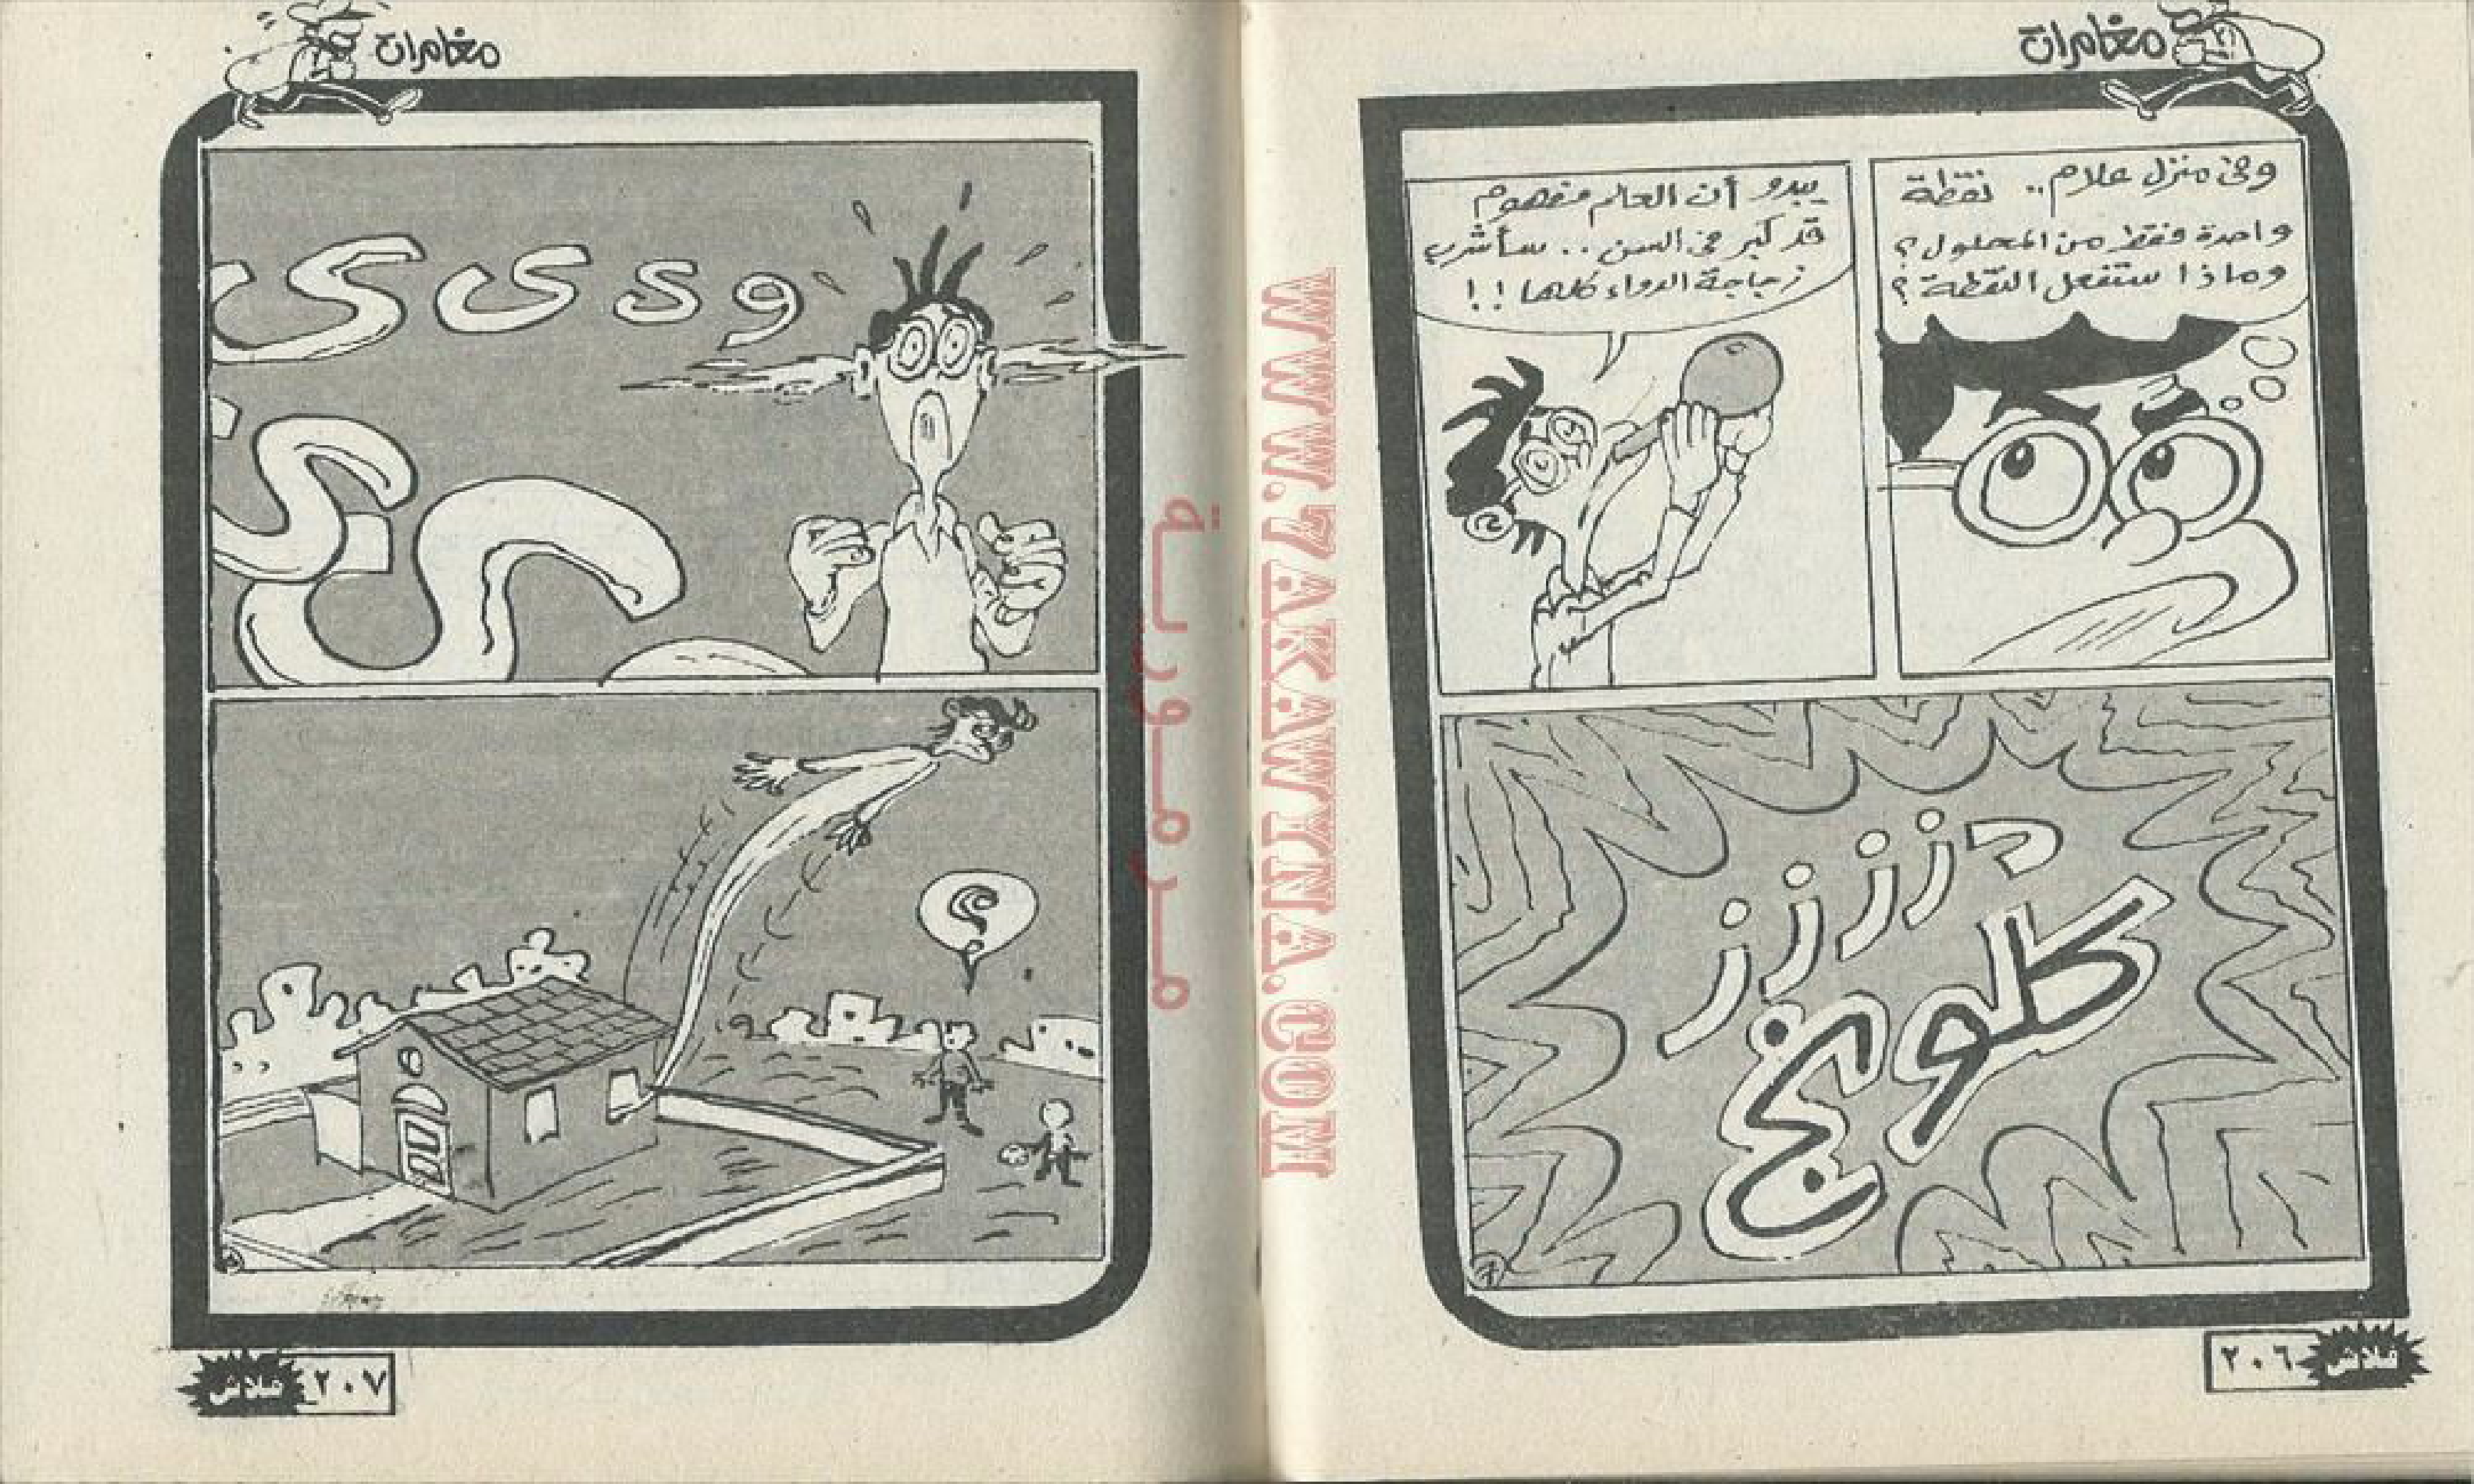 مغامرات
وفى منزل علام.. نقطة
واحدة فقط من المحلول؟
وماذا ستفعل النقطة؟
يبدو أن العالم مفهوم
قد كبر فى السن.. سأشرب
زجاجة الدواء كلها!!
دزززز
كلونج
٢٠٦
فلاش
مغامرات
وىىى
ى
ى
؟
٢٠٧
فلاش
مرمورية
WWW.ZAKAWTNA.COM